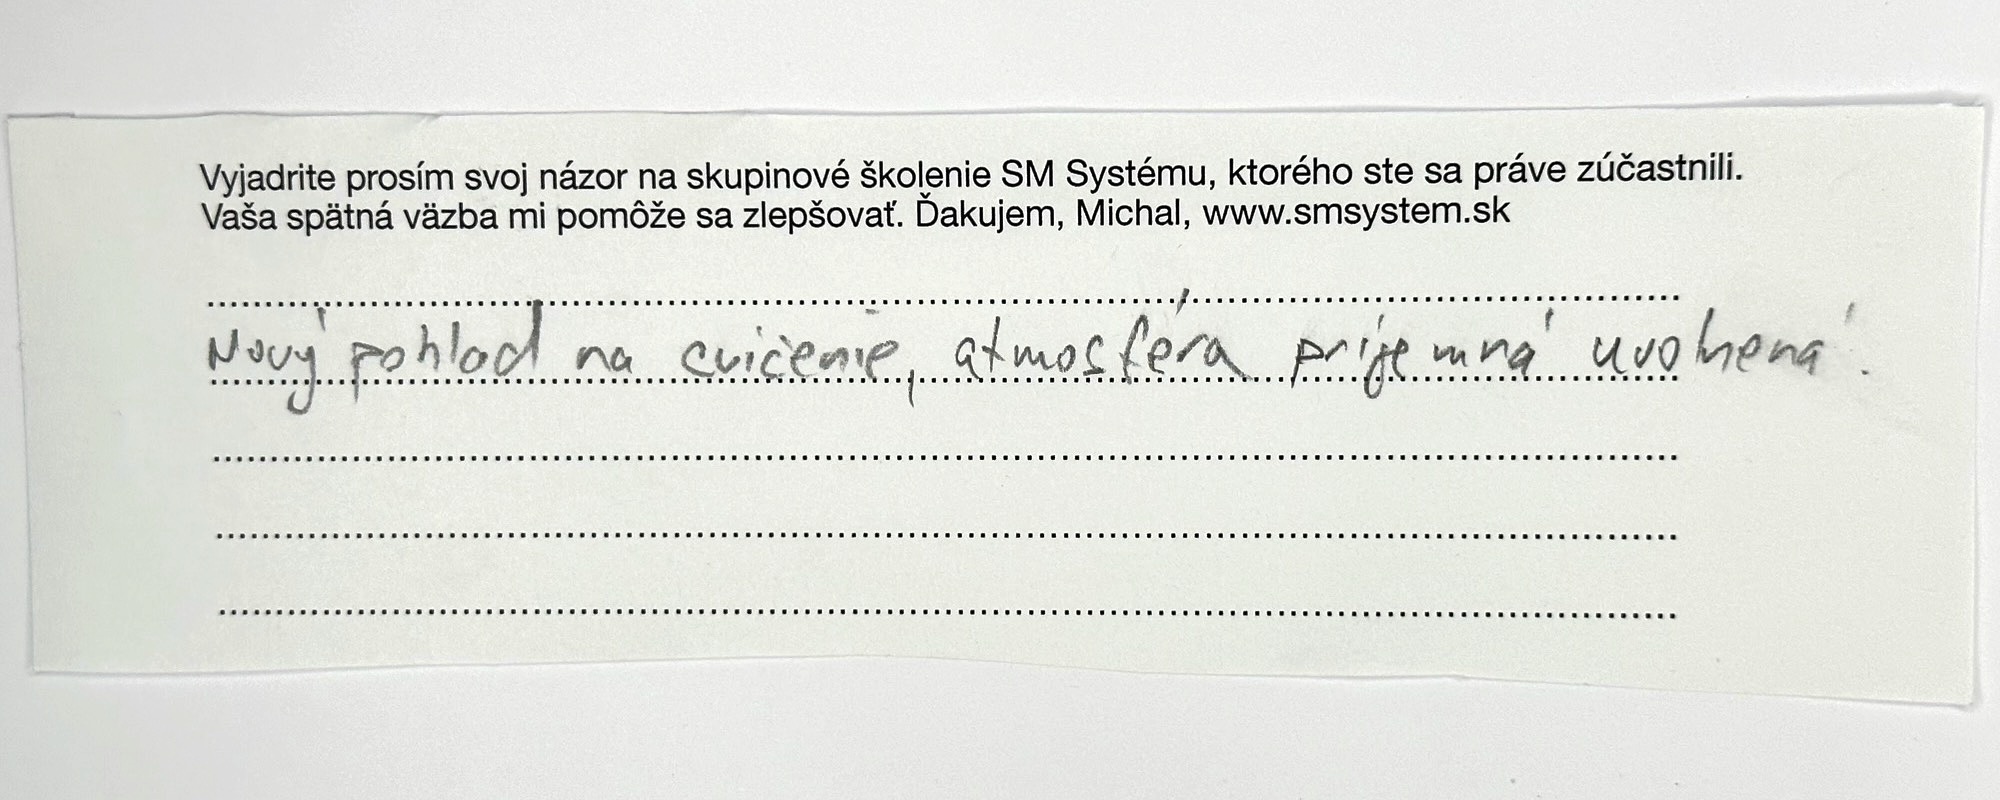 Vyjadrite prosím svoj názor na skupinové školenie SM Systému, ktorého ste sa práve zúčastnili.
Vaša spätná väzba mi pomôže sa zlepšovať. Ďakujem, Michal, www.smsystem.sk
Nový pohlad na cvičenie, atmosféra príjemná uvolnená.